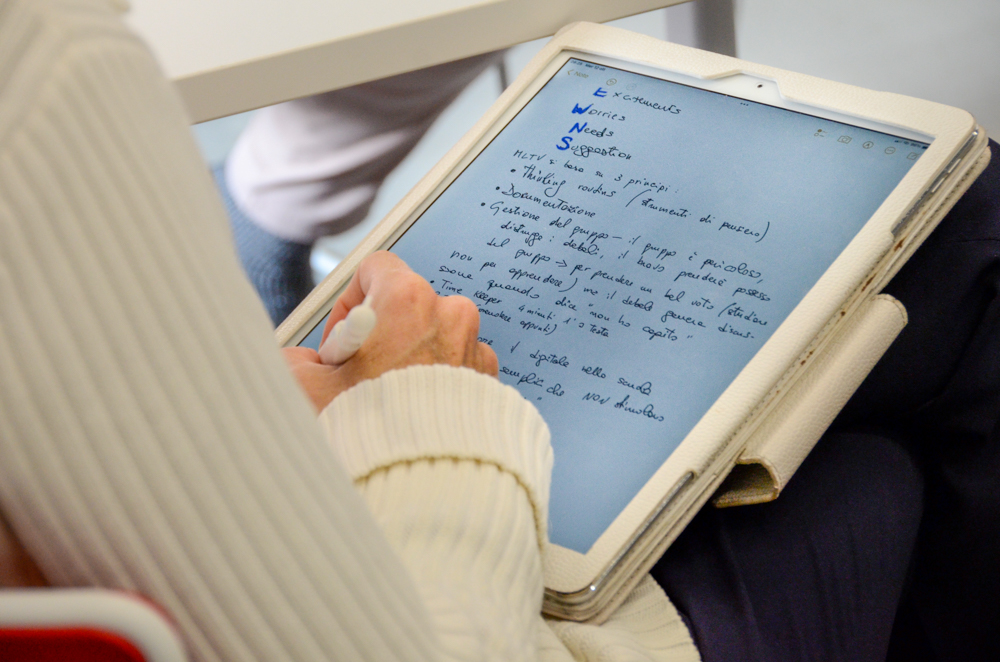 Note
Excitements
Worries
Needs
Suggestion
MLTV si basa su 3 principi
• Thinking routins (strumenti di pensiero)
• Documentazione
• Gestione del gruppo – il gruppo è pericoloso,
distrugge i deboli, il bravo prenderà possesso
del gruppo → per prendere un bel voto (studiare
non per apprendere) ma il debole genera discus-
sione quando dice "non ho capito"
• Time Keeper 4 minuti 1'
(prendere appunti)
il digitale nella scuola
semplici che NON stimolano